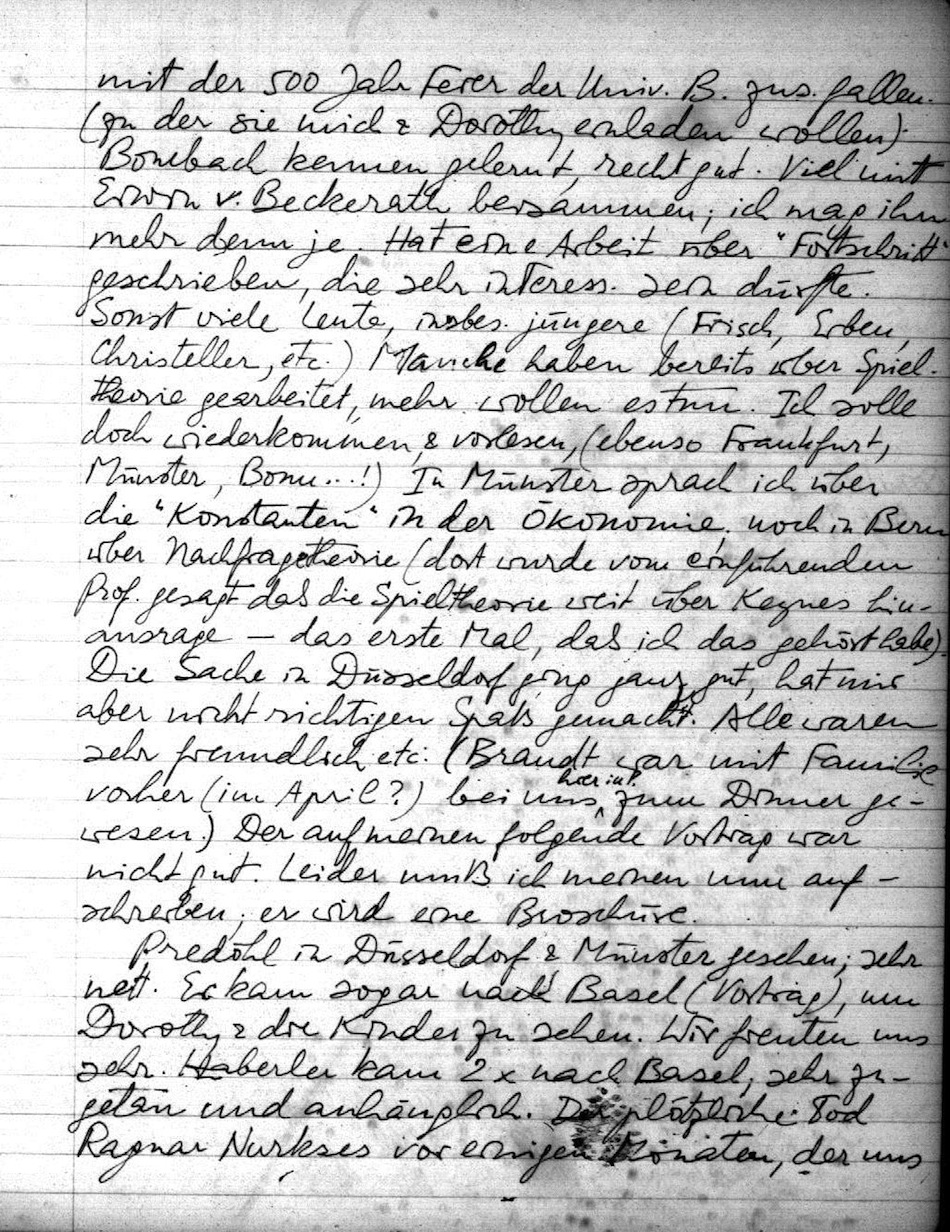 mit der 500 Jahr Feier der Univ. B. zus. fallen.
(zu der sie mich & Dorothy einladen wollen).
Bombach kennen gelernt, recht gut. Viel mit
Erwin v. Beckerath beisammen; ich mag ihn
mehr denn je. Hat eine Arbeit über "Fortschritt"
geschrieben, die sehr interess. sein dürfte.
Sonst viele Leute, insbes. jüngere (Frisch, Erben,
Christeller, etc.) Manche haben bereits über Spiel-
theorie gearbeitet, mehr wollen es tun. Ich solle
doch wiederkommen, & vorlesen, (ebenso Frankfurt,
Münster, Bonn...!) In Münster sprach ich über
die "Konstanten" in der Ökonomie, noch in Bern
über Nachfragetheorie (dort wurde vom einführenden
Prof. gesagt daß die Spieltheorie weit über Keynes hin-
ausrage — das erste Mal, daß ich das gehört habe).
Die Sache in Düsseldorf ging ganz gut, hat mir
aber nicht richtigen Spaß gemacht. Alle waren
sehr freundlich, etc. (Brandt war mit Familie
vorher (im April?) bei uns hier in P. zum Dinner ge-
wesen.) Der auf meinen folgende Vortrag war
nicht gut. Leider muß ich meinen nun auf-
schreiben; er wird eine Broschüre.
Predöhl in Düsseldorf & Münster gesehen; sehr
nett. Er kam sogar nach Basel (Vortrag), um
Dorothy & die Kinder zu sehen. Wir freuten uns
sehr. Haberler kam 2 x nach Basel, sehr zu-
getan und anhänglich. Der plötzliche Tod
Ragnar Nurkses vor einigen Monaten, der uns